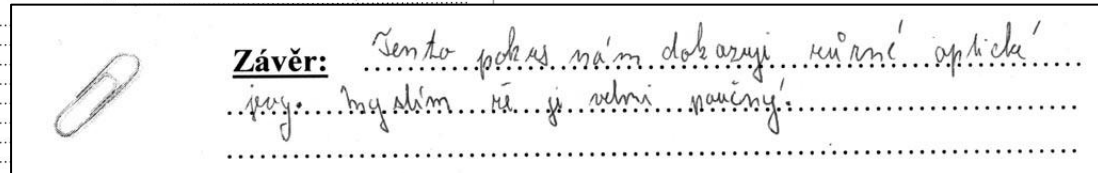 Závěr: Tento pokus nám dokazuji různé optické
jevy. Myslím že ji velmi poučný.